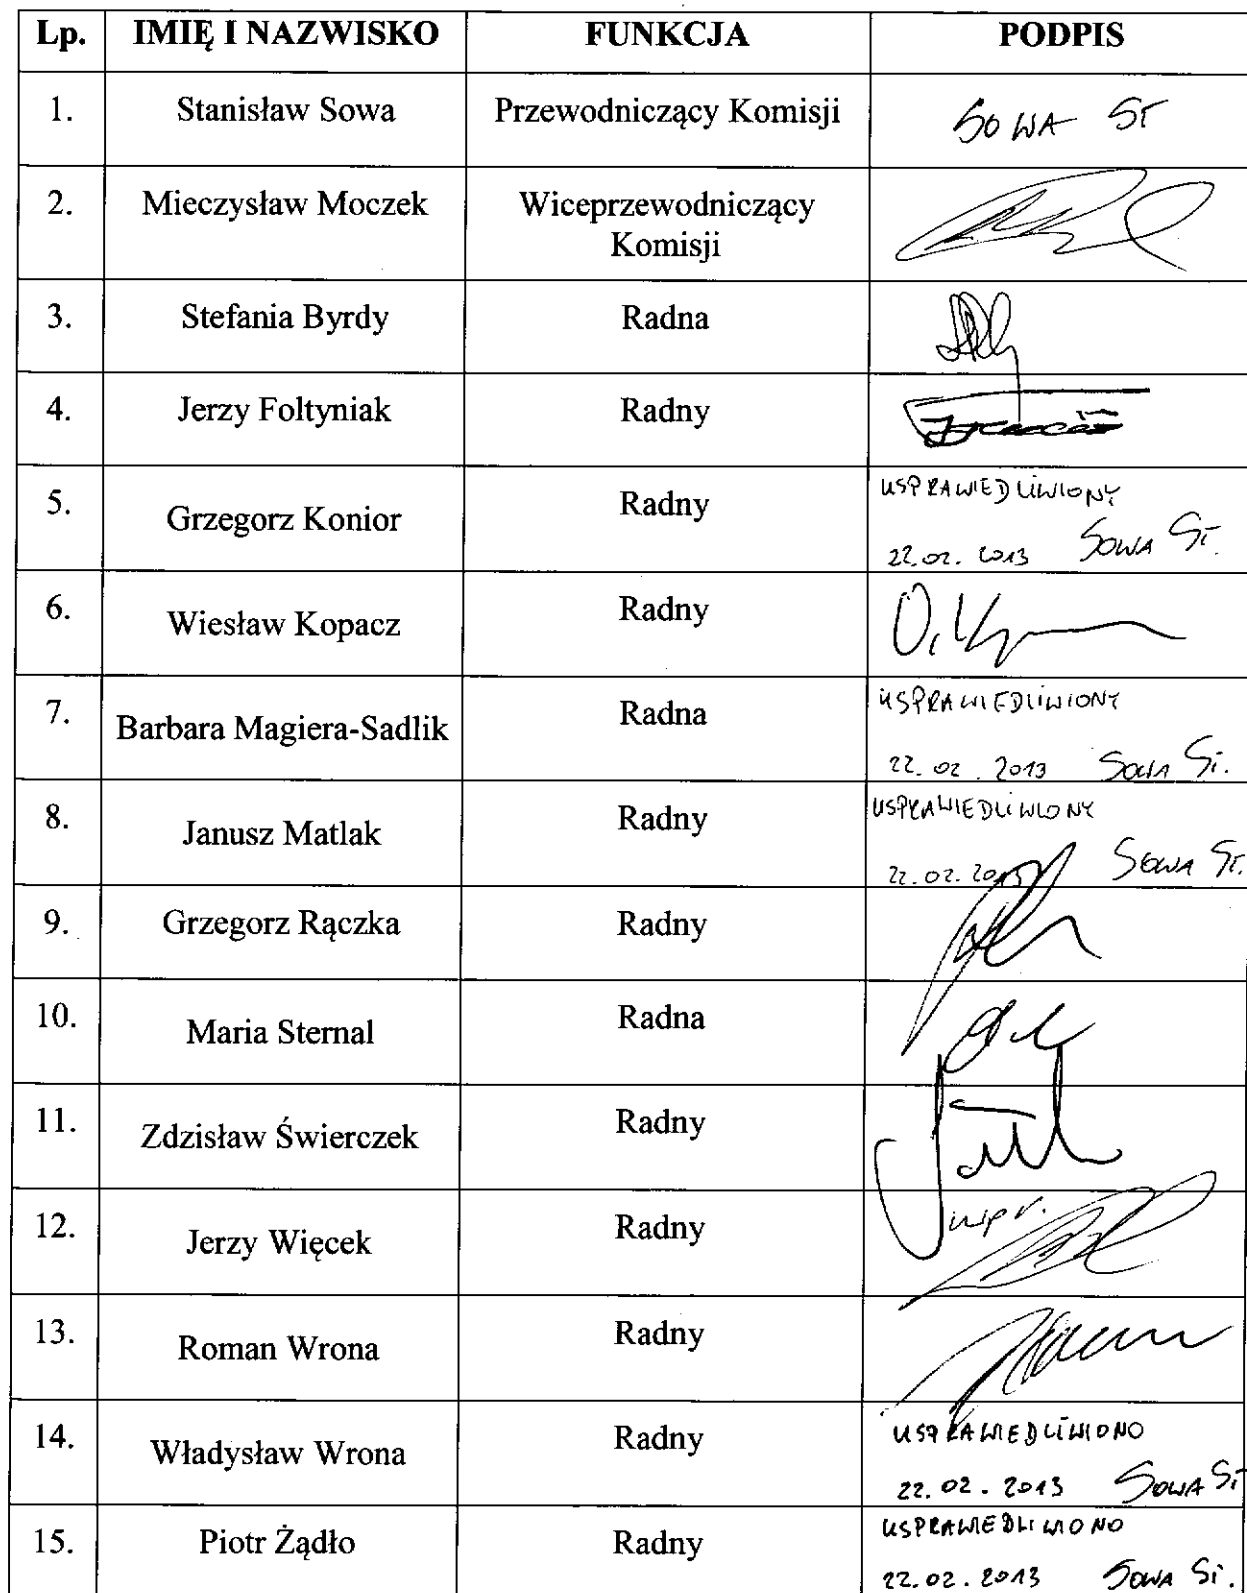 Lp. IMIĘ I NAZWISKO FUNKCJA PODPIS
1. Stanisław Sowa Przewodniczący Komisji SOWA ST
2. Mieczysław Moczek Wiceprzewodniczący
Komisji
3. Stefania Byrdy Radna
4. Jerzy Foltyniak Radny
5. Grzegorz Konior Radny USPRAWIEDLIWIONY
22.02.2013 SOWA ST.
6. Wiesław Kopacz Radny
7. Barbara Magiera-Sadlik Radna USPRAWIEDLIWIONY
22.02.2013 SOWA ST.
8. Janusz Matlak Radny USPRAWIEDLIWIONY
22.02.2013 SOWA ST.
9. Grzegorz Rączka Radny
10. Maria Sternal Radna
11. Zdzisław Świerczek Radny
12. Jerzy Więcek Radny
13. Roman Wrona Radny
14. Władysław Wrona Radny USPRAWIEDLIWIONO
22.02.2013 SOWA ST
15. Piotr Żądło Radny USPRAWIEDLIWIONO
22.02.2013 SOWA ST.